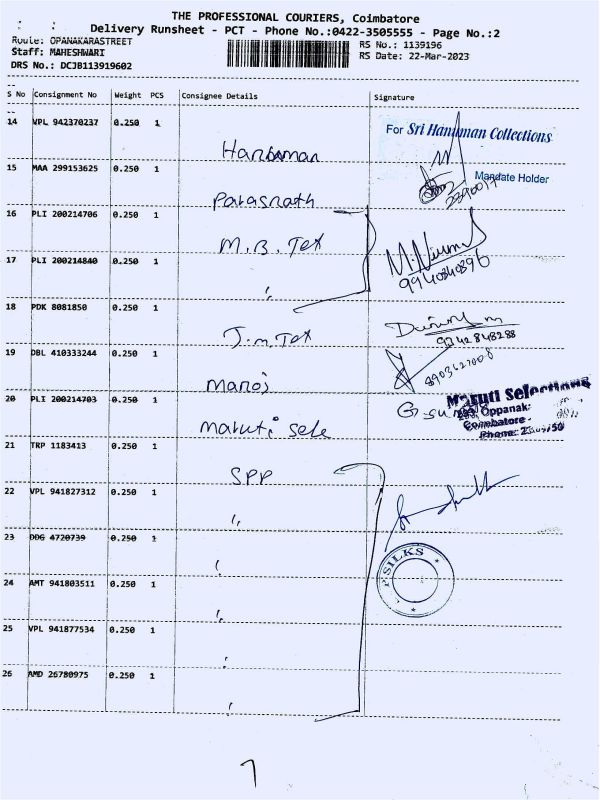 THE PROFESSIONAL COURIERS, Coimbatore
Delivery Runsheet - PCT - Phone No.:0422-3505555 - Page No.:2
Route: OPANAKARASTREET
RS No.: 1139196
Staff: MAHESHWARI
RS Date: 22-Mar-2023
DRS No.: DCJB113919602
S No Consignment No Weight PCS Consignee Details Signature
14 VPL 942370237 0.250 1 Hanuman
For Sri Hanuman Collections
15 MAA 299153625 0.250 1 Parasnath
Mandate Holder
16 PLI 200214706 0.250 1 M.B. Tex
17 PLI 200214840 0.250 1 "
9940840896
18 PDK 8081850 0.250 1 J.m.Tex
9342848288
19 DBL 410333244 0.250 1 Manoj
8903627008
20 PLI 200214703 0.250 1 maruti sele
Maruti Selections
Oppanak
Coimbatore -
Phone:
21 TRP 1183413 0.250 1 SPP
22 VPL 941827312 0.250 1 "
23 DDG 4720739 0.250 1 "
24 AMT 941803511 0.250 1 "
SILKS
25 VPL 941877534 0.250 1 "
26 AMD 26780975 0.250 1 "
7